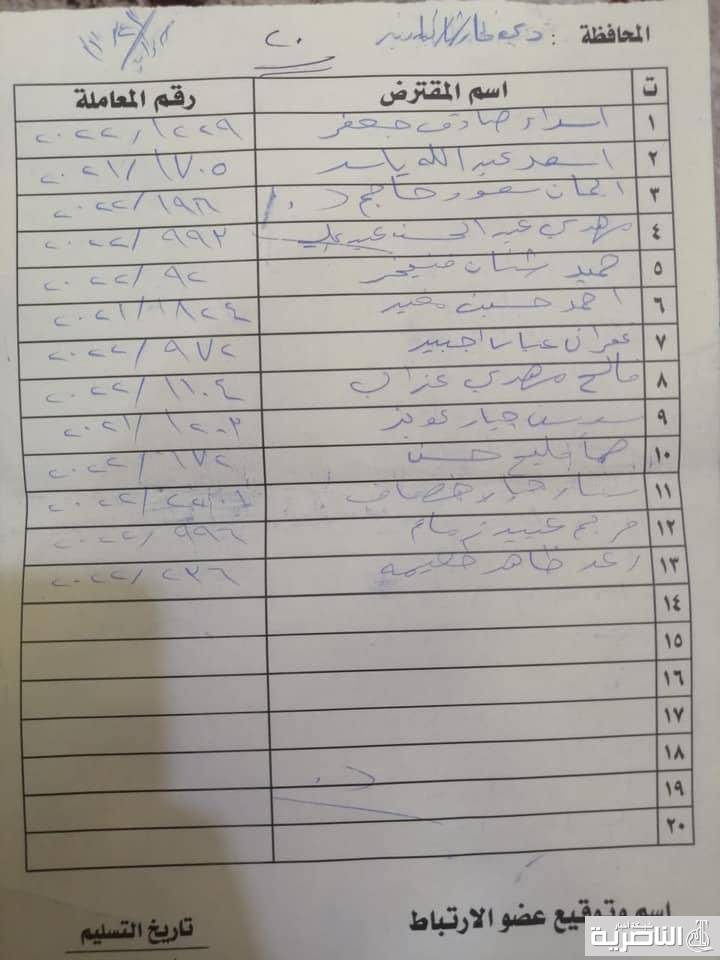 المحافظة : ذي قار
٢٠
ت اسم المقترض رقم المعاملة
١ اسراء صادق جعفر ٢٠٢٢/١٢٢٩
٢ اسعد عبد الله ياسر ٢٠٢١/١٧٠٥
٣ سعود حاجم ٢٠٢٢/١٩٦
٤ مهدي عبد الحسن عبد علي ٢٠٢٢/٩٩٣
٥ حميد شنان ٢٠٢٢/٩٢
٦ احمد حسين ٢٠٢١/١٨٢٤
٧ غفران عباس اجبير ٢٠٢٢/٩٧٢
٨ فالح مهدي عزاب ٢٠٢٢/١١٠٤
٩ جبار كويز ٢٠٢١/١٢٠٣
١٠ فليح حسن ٢٠٢٢/١٧٢
١١ ستار جبار خصاف
١٢ مريم عبيد زمام ٢٠٢٢/٩٩٦
١٣ رعد ظاهر ٢٠٢٢/٢٣٦
١٤
١٥
١٦
١٧
١٨
١٩
٢٠
اسم وتوقيع عضو الارتباط تاريخ التسليم
شبكة اخبار الناصرية